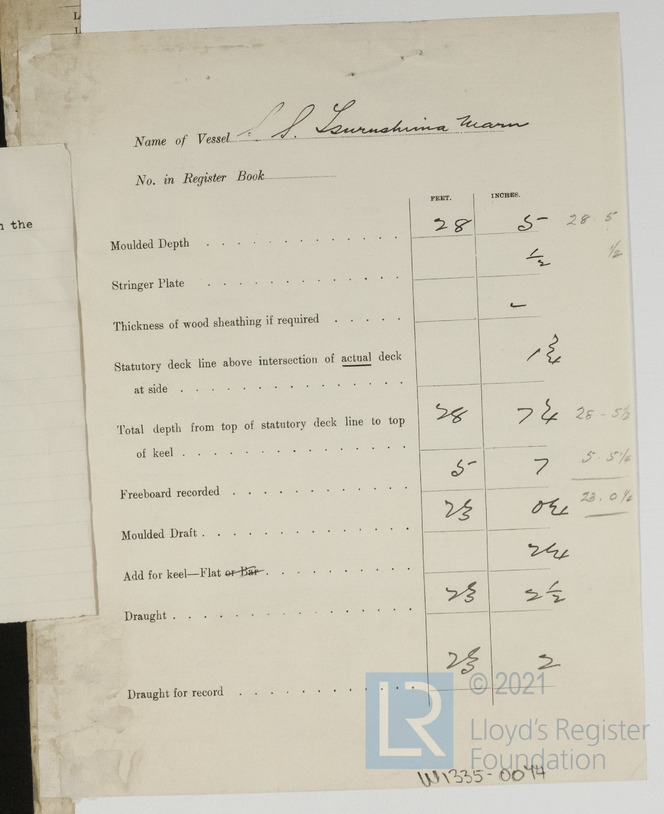 Name of Vessel S. S. Tsurushima Maru
No. in Register Book
FEET. INCHES.
n the
Moulded Depth . . . . . . . . . . . 28 5 28 5
Stringer Plate . . . . . . . . . . . ½ ½
Thickness of wood sheathing if required . . . . . -
Statutory deck line above intersection of actual deck
at side . . . . . . . . . . . . . 1¾
Total depth from top of statutory deck line to top
of keel . . . . . . . . . . . . . 28 7¼ 28 - 5½
Freeboard recorded . . . . . . . . . . 5 7 5. 5¼
Moulded Draft . . . . . . . . . . . . 23 0¼ 23. 0¼
Add for keel—Flat or Bar . . . . . . . . . 2¼
Draught . . . . . . . . . . . . . 23 2½
Draught for record . . . . . . . . . . 23 2
LR
© 2021
Lloyd's Register
Foundation
W1335-0074